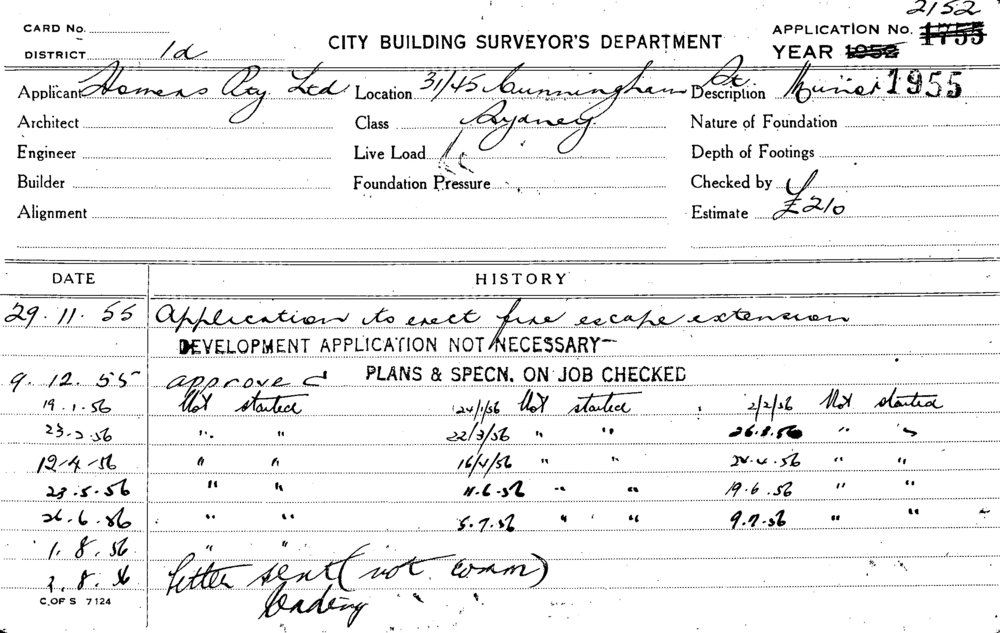 2152
CARD No.
APPLICATION No. 1755
DISTRICT 1d
CITY BUILDING SURVEYOR'S DEPARTMENT
YEAR 1952 1955
Applicant Homers Pty Ltd Location 31/45 Cunningham St. Description Minor
Architect Class Sydney Nature of Foundation
Engineer Live Load Depth of Footings
Builder Foundation Pressure Checked by
Alignment Estimate £210
DATE HISTORY
29.11.55 Application to erect fire escape extension
DEVELOPMENT APPLICATION NOT NECESSARY
9.12.55 approved PLANS & SPECN. ON JOB CHECKED
19.1.56 Not started 24/1/56 Not started 2/2/56 Not started
23.2.56 " " 22/3/56 " " 26.3.56 "
12-4-56 " " 16/4/56 " " 24.4.56 " "
23.5.56 " " 11.6.56 " " 19.6.56 " "
26.6.56 " " 5.7.56 " " 9.7.56 " "
1.8.56 " "
8.56 Letter sent (not comm)
C.OF S 7124